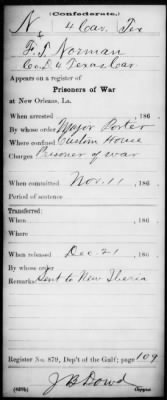 (Confederate.)
N 4 Cav. Tex
F. S. Norman
Co. D, 4 Texas Cav
Appears on a register of
Prisoners of War
at New Orleans, La.
When arrested 186 .
By whose order Major Porter
Where confined Custom House
Charges Prisoner of war
When committed Nov. 11, 186 .
Period of sentence
Transferred:
When 186 .
Where
When released Dec 21, 186 .
By whose order
Remarks: Sent to New Iberia
Register No. 879, Dep't of the Gulf; page 109
J B Dowd
Copyist.